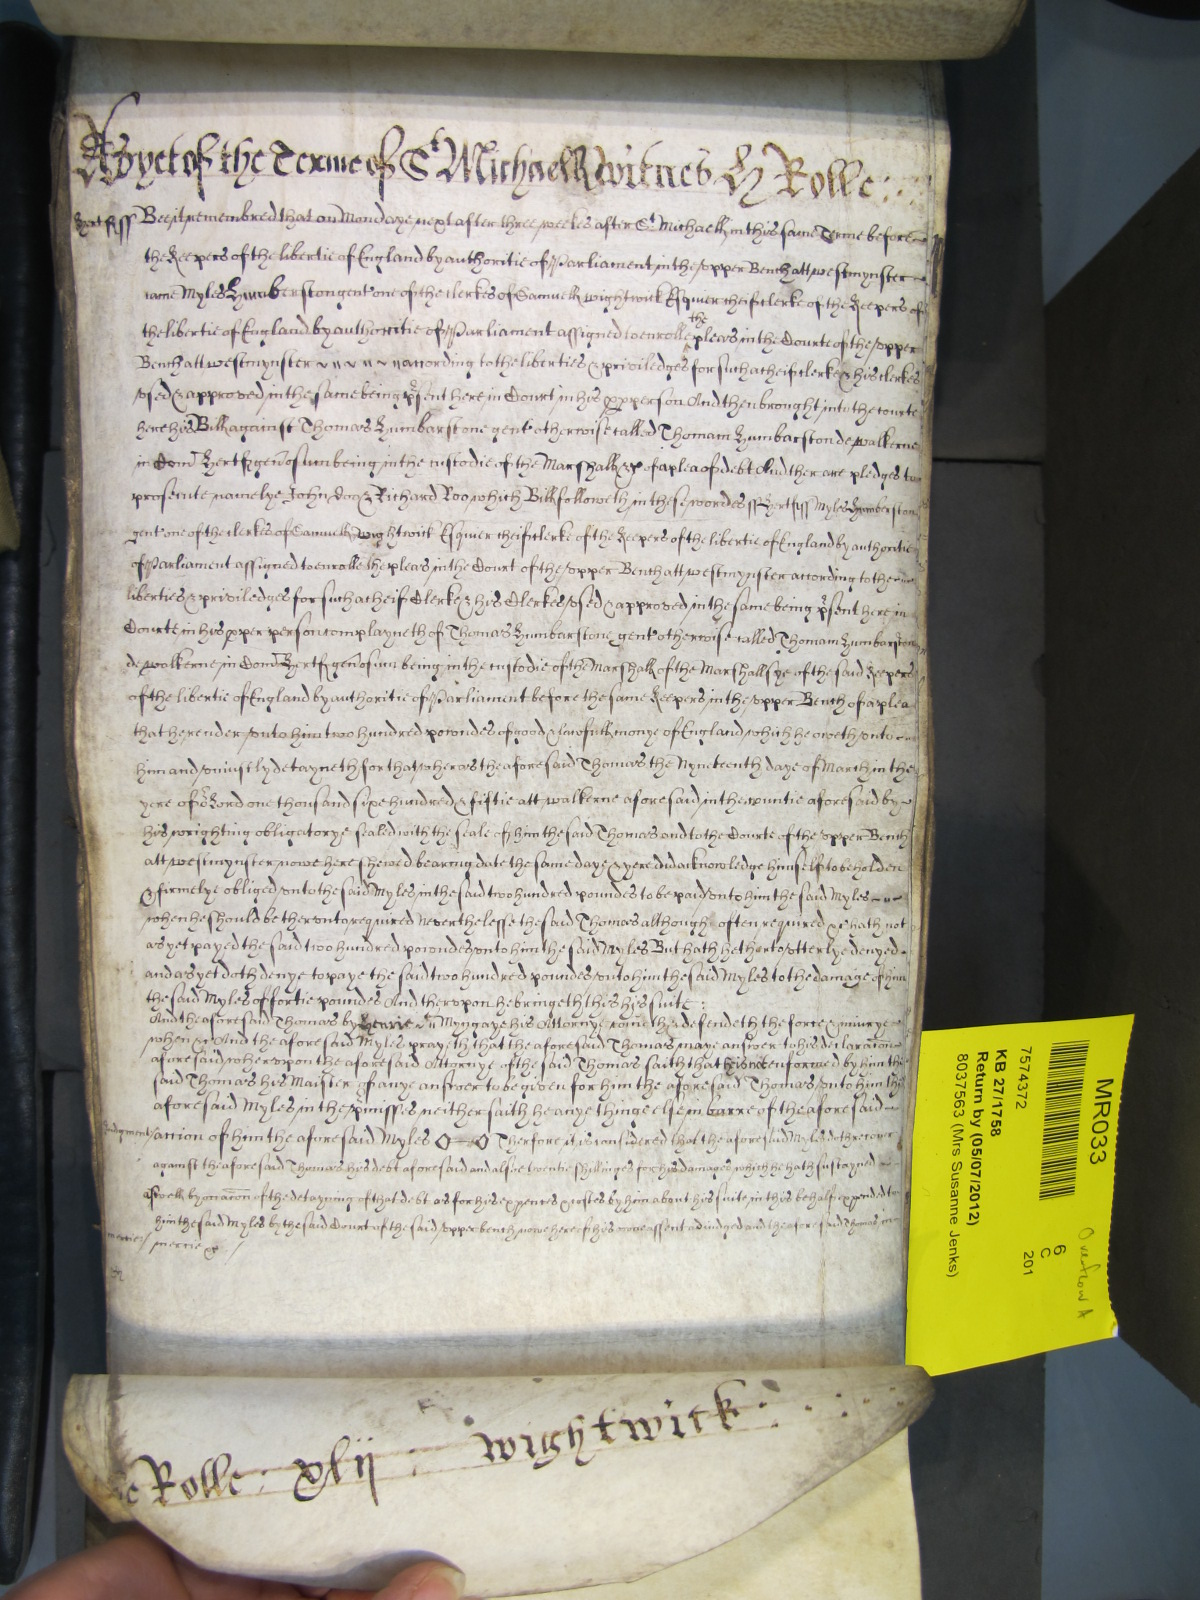 As yet of the Terme of St Michaell witnes By Rolle
Hertf ss Bee it remembred that on Mondaye next after three weekes after St Michaell in this same Terme before
the Keepers of the libertie of England by authoritie of Parliament in the vpper Bench att westmynster
came Myles Humberston gent one of the clerkes of Samuell wightwick Esquier cheif clerke of the Keepers of
the libertie of England by authoritie of Parliament assigned to enrolle the pleas in the Courte of the vpper
Bench att westmynster according to the liberties & priviledges for such a cheif clerke & his clerkes
vsed & approved in the same being psent here in Court in his pper person And then brought into the courte
here his Bill against Thomas Humbarstone gent otherwise called Thomam Humbarston de walkerne
in Com Hertf genosum being in the custodie of the Marshall &c of a plea of debt And ther are pledges to
prosecute namelye John Doo & Richard Roo which Bill followeth in these wordes ss Hertf ss Myles Humberston
gent one of the clerkes of Samuell Wightwick Esquier cheif clerke of the Keepers of the libertie of England by authoritie
of Parliament assigned to enrolle the pleas in the Court of the vpper Bench att westmynster according to the
liberties & priviledges for such a cheif Clerke & his Clerkes vsed & approved in the same being psent here in
Courte in his pper person complayneth of Thomas Humbarstone gent otherwise called Thomam Humbarston
de walkerne in Com Hertf genosum being in the custodie of the Marshall of the Marshallsye of the said Keepers
of the libertie of England by authoritie of Parliament before the same Keepers in the vpper Bench of a plea
that he render vnto him two hundred powndes of good & lawfull monye of England which he oweth vnto
him and vniustly detayneth for that wheras the aforesaid Thomas the Nyneteenth daye of March in the
yere of or Lord one thousand sixe hundred & fiftie att walkerne aforesaid in the countie aforesaid by
his wrighting obligatorye sealed with the seale of him the said Thomas and to the Courte of the vpper Bench
att westmynster nowe here shewed bearing date the same daye & yere did acknowledge himself to be holden
& firmelye obliged vnto the said Myles in the said two hundred poundes to be paid vnto him the said Myles
when he should be thervnto required Neverthelesse the said Thomas although often required &c hath not
as yet payed the said two hundred powndes vnto him the said Myles But hath hetherto vtterlye denyed
and as yet doth denye to paye the said two hundred poundes vnto him the said Myles to the damage of him
the said Myles of fortie poundes And thervpon he bringeth this his suite
And the aforesaid Thomas by Henrie Myngaye his Attornye cometh & defendeth the force & iniurye
when &c And the aforesaid Myles prayeth that the aforesaid Thomas maye answer to his declaracon
aforesaid whervpon the aforesaid Attornye of the said Thomas saith that he is not enformed by him the
said Thomas his Maister of anye answer to be given for him the aforesaid Thomas vnto him the
aforesaid Myles in the pmisses neither saith he anye thinge else in barre of the aforesaid
Judgment accion of him the aforesaid Myles Therfore it is considered that the aforesaid Myles doth recover
against the aforesaid Thomas his debt aforesaid and alsoe twentie shillinges for his damages which he hath sustayned
aswell by occacon of the detayning of that debt as for his expences & costes by him about his suite in this behalf expended to
him the said Myles by the said Court of the said vpper bench nowe here of his owne assent adiudged and the aforesaid Thomas in
mercie / mercie &c
Rolle : xlij : wightwick
MR033
7574372
KB 27/1758
Return by (05/07/2012)
8037563 (Mrs Susanne Jenks)
6
C
201
Overflow A